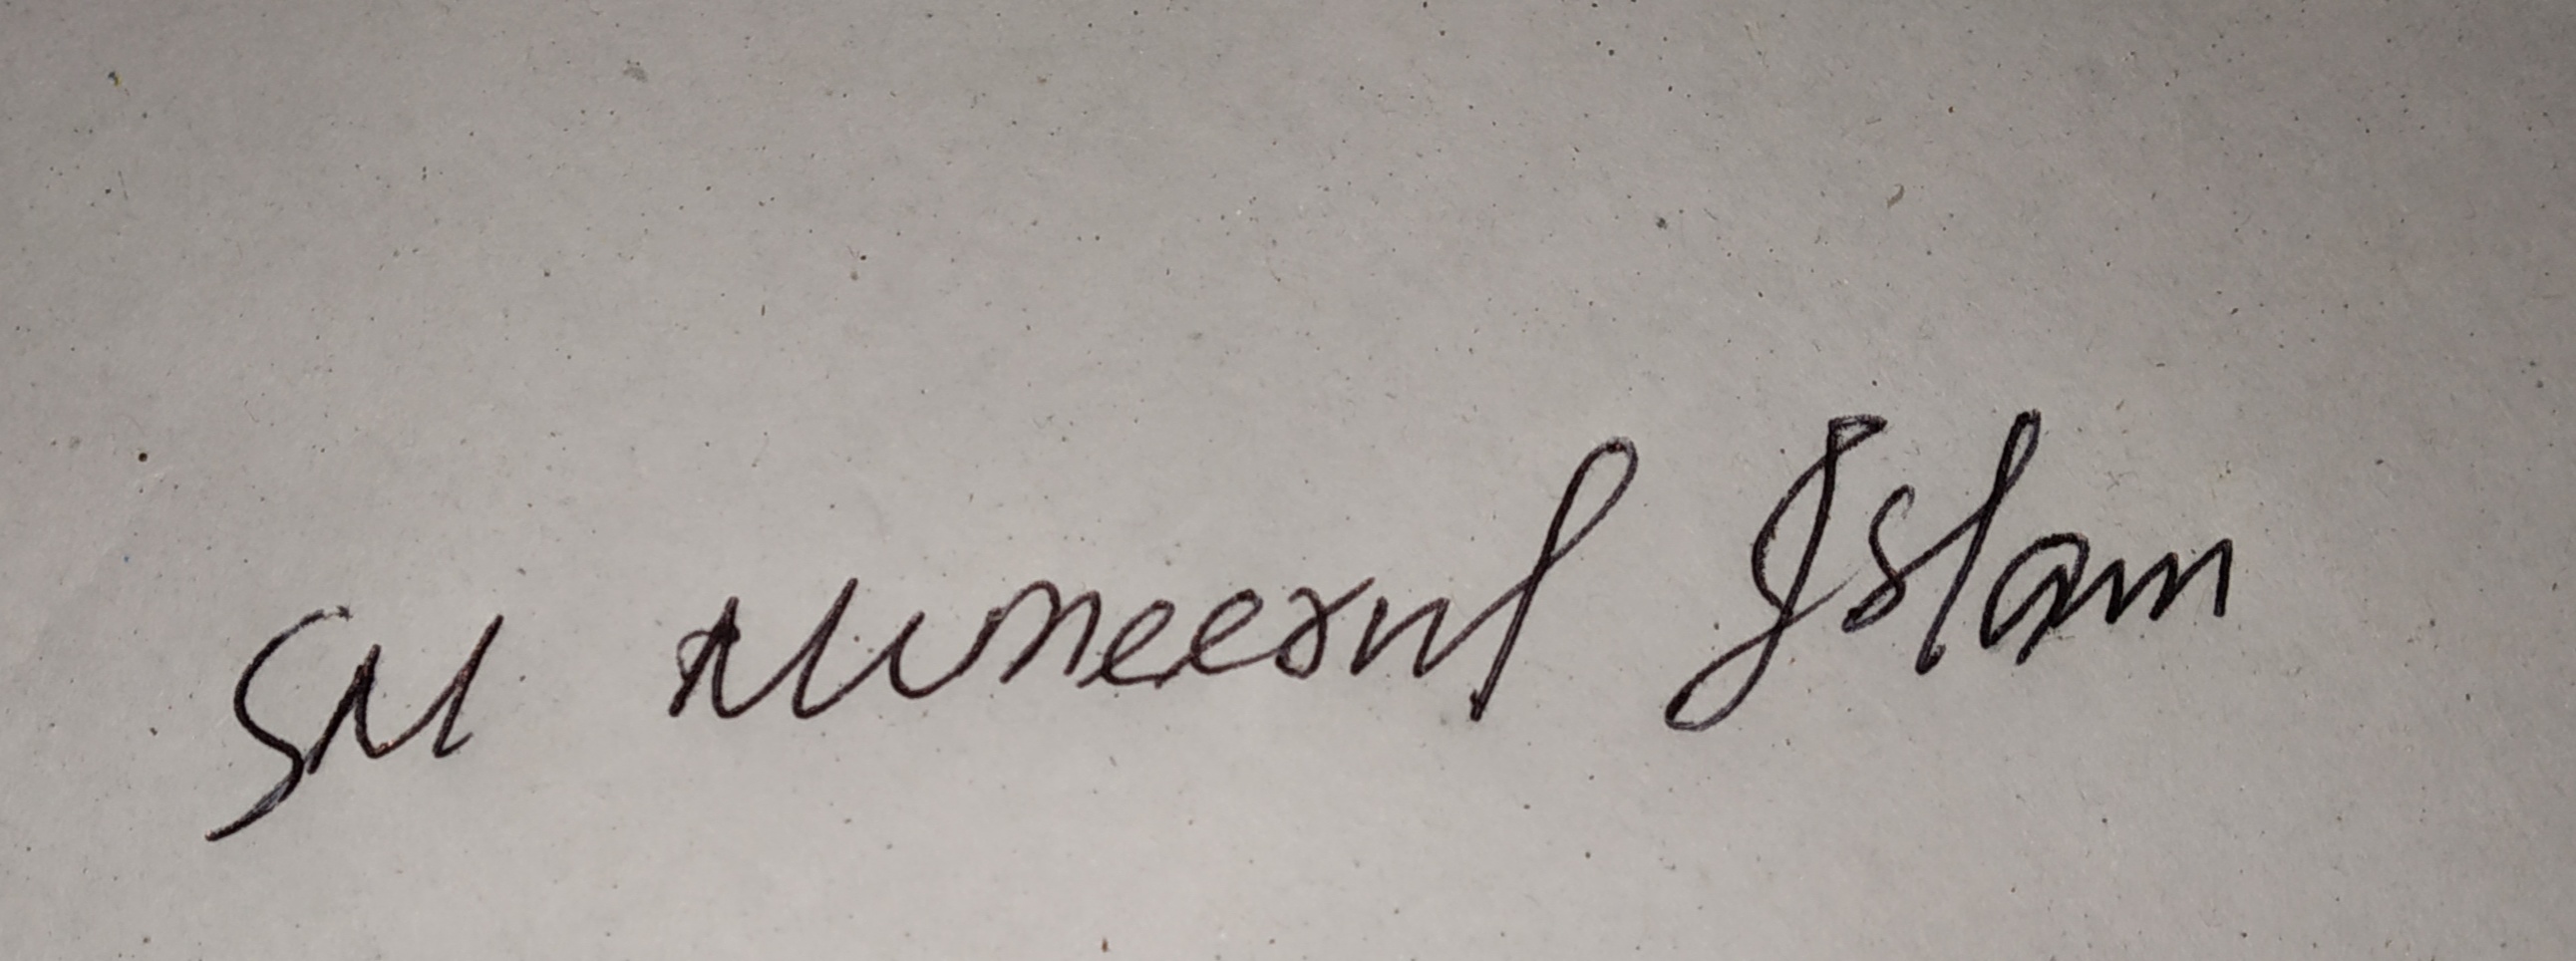 SM Muneerul Islam